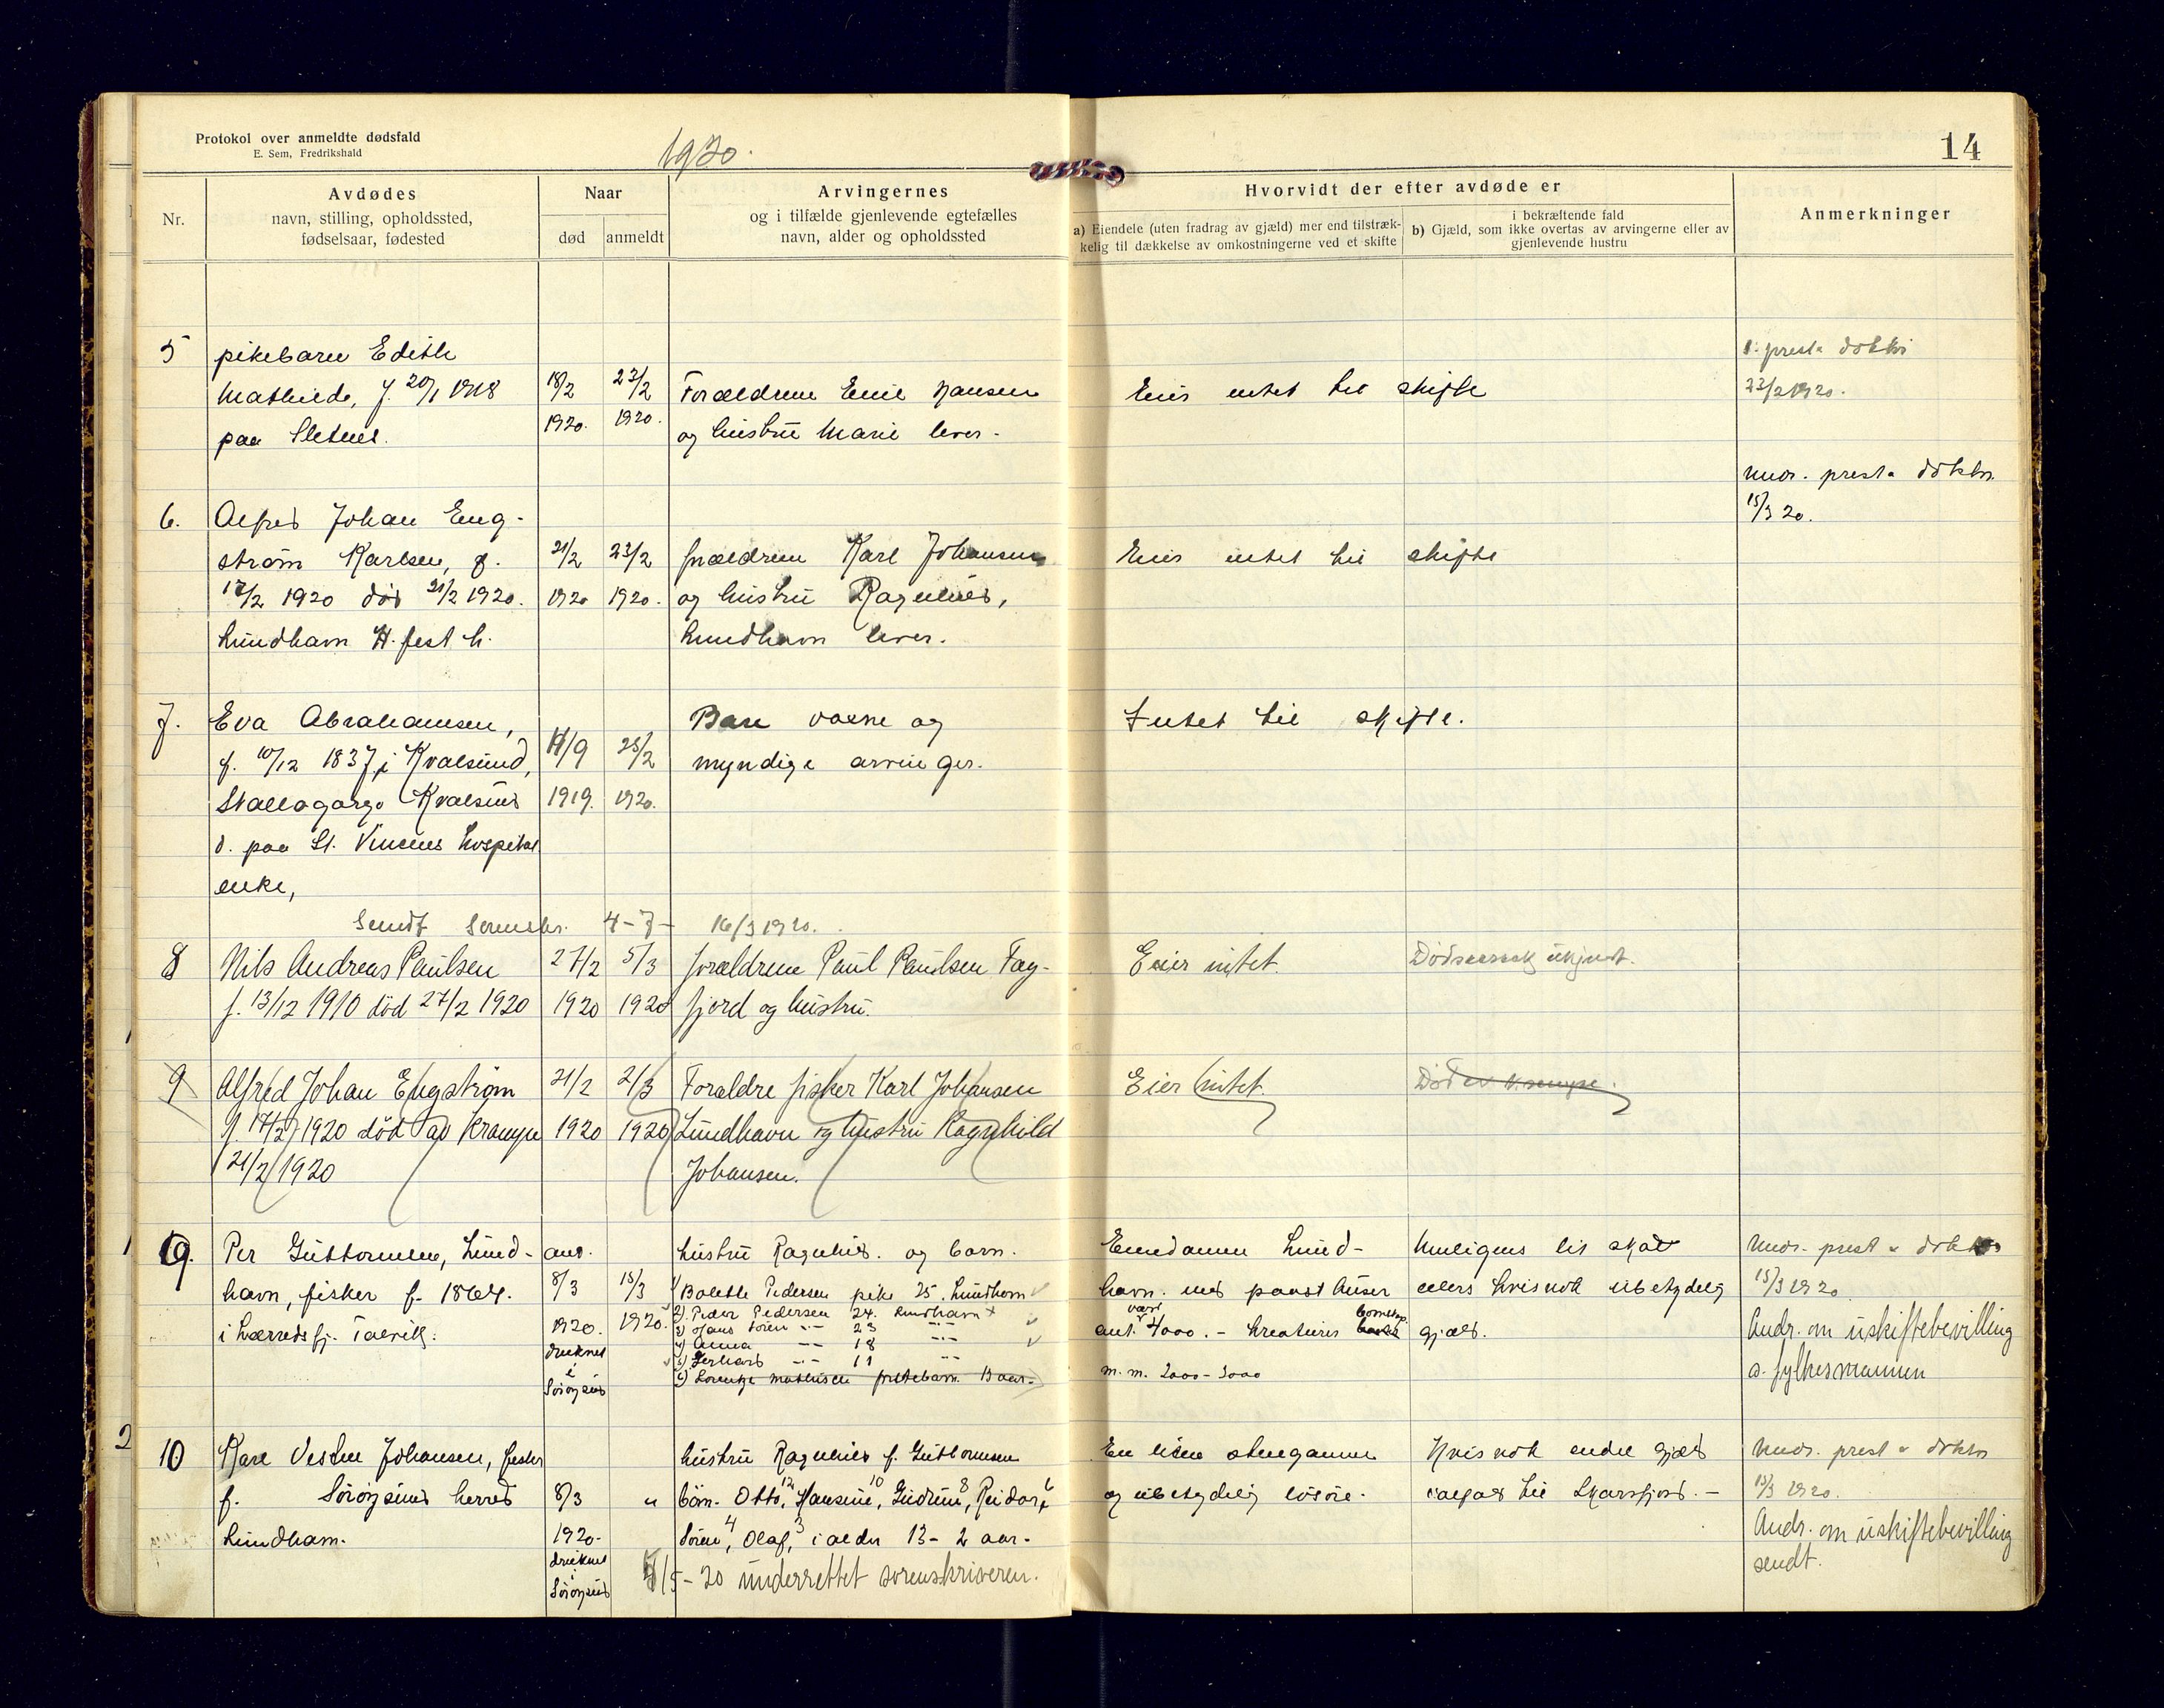 Protokol over anmeldte dødsfald
E. Sem, Fredrikshald
1920.
14
Nr.
Avdødes
navn, stilling, opholdssted,
fødselsaar, fødested
Naar
død
anmeldt
Arvingernes
og i tilfælde gjenlevende egtefælles
navn, alder og opholdssted
Hvorvidt der efter avdøde er
a) Eiendele (uten fradrag av gjæld) mer end tilstræk-
kelig til dækkelse av omkostningerne ved et skifte
i bekræftende fald
b) Gjæld, som ikke overtas av arvingerne eller av
gjenlevende hustru
Anmerkninger
5
pikebarn Edith
Mathilde, f. 20/1 1918
paa Sletnes.
18/2
1920.
23/2
1920.
Forældrene Emil Hansen
og hustru Marie lever.
Eier intet til skifte
prest & doktor
23/2 1920.
6.
Alfred Johan Eng-
strøm Karlsen, f.
17/2 1920 død 21/2 1920.
Lundhavn H.fest h.
21/2
1920
23/2
1920.
forældrene Karl Johansen
og hustru Ragnhild,
Lundhavn lever.
Eier intet til skifte
Undr. prest & doktor.
15/3 20.
7.
Eva Abrahamsen,
f. 10/12 1837 i Kvalsund,
Stallogargo Kvalsund
d. paa St. Vincens hospital
enke,
11/9
1919.
25/2
1920.
Bare voksne og
myndige arvinger.
Intet til skifte.
Sendt Sorenskr. 4-7- 16/3 1920.
8
Nils Andreas Paulsen
f. 13/12 1910 död 27/2 1920
27/2
1920
5/3
1920
forældrene Paul Paulsen Fæg-
fjord og hustru.
Eier intet.
Dödsaarsak ukjendt.
9
Alfred Johan Engstrøm
f. 17/2 1920 död av Krampe
21/2 1920
21/2
1920
2/3
1920
Forældre fisker Karl Johansen
Lundhavn og hustru Ragnhild
Johansen.
Eier intet.
Död av krampe.
9.
Per Guttormsen, Lund-
havn, fisker f. 1864.
i Lærredsfj. Talvik.
8/3
1920.
druknet
i
Sörøysund
15/3
1920.
hustru Ragnhild. og barn.
1) Bolette Pedersen pike 25. Lundhavn
2) Peder Pedersen 24. Lundhavn
3) Hans Sören -"- 23 -"-
4) Anna -"- 18 -"-
5) Gerhard -"- 11 -"-
6) Lorentze Mathisen fostebarn 13 aar.
Eiendommen Lund-
havn. med paast. huser
ant. værd 4000. - kreaturer
m.m. 2000-3000
Muligens lit skat
ellers hvis nok ubetydelig
gjæld.
Undr. prest & doktor
15/3 1920.
Andr. om uskiftebevilling
a. fylkesmannen
10
Karl Johansen, fisker
f. Sörøysund herred
Lundhavn.
8/3
1920.
druknet
i
Sörøysund
"
hustru Ragnhild f. Guttormsen
börn. Otto, 12 Hansine, 10 Gudrun, 8 Reidar, 6
Sören, 4 Olaf, 3 i alder 13-2 aar.
5/5-20 underrettet sorenskriveren.
En liten stengamme
og ubetydelig lösöre.
Hvis nok endel gjæld
ialfald til Skarsfjord.-
Undr. prest & doktor
15/3 1920.
Andr. om uskiftebevilling
sendt.